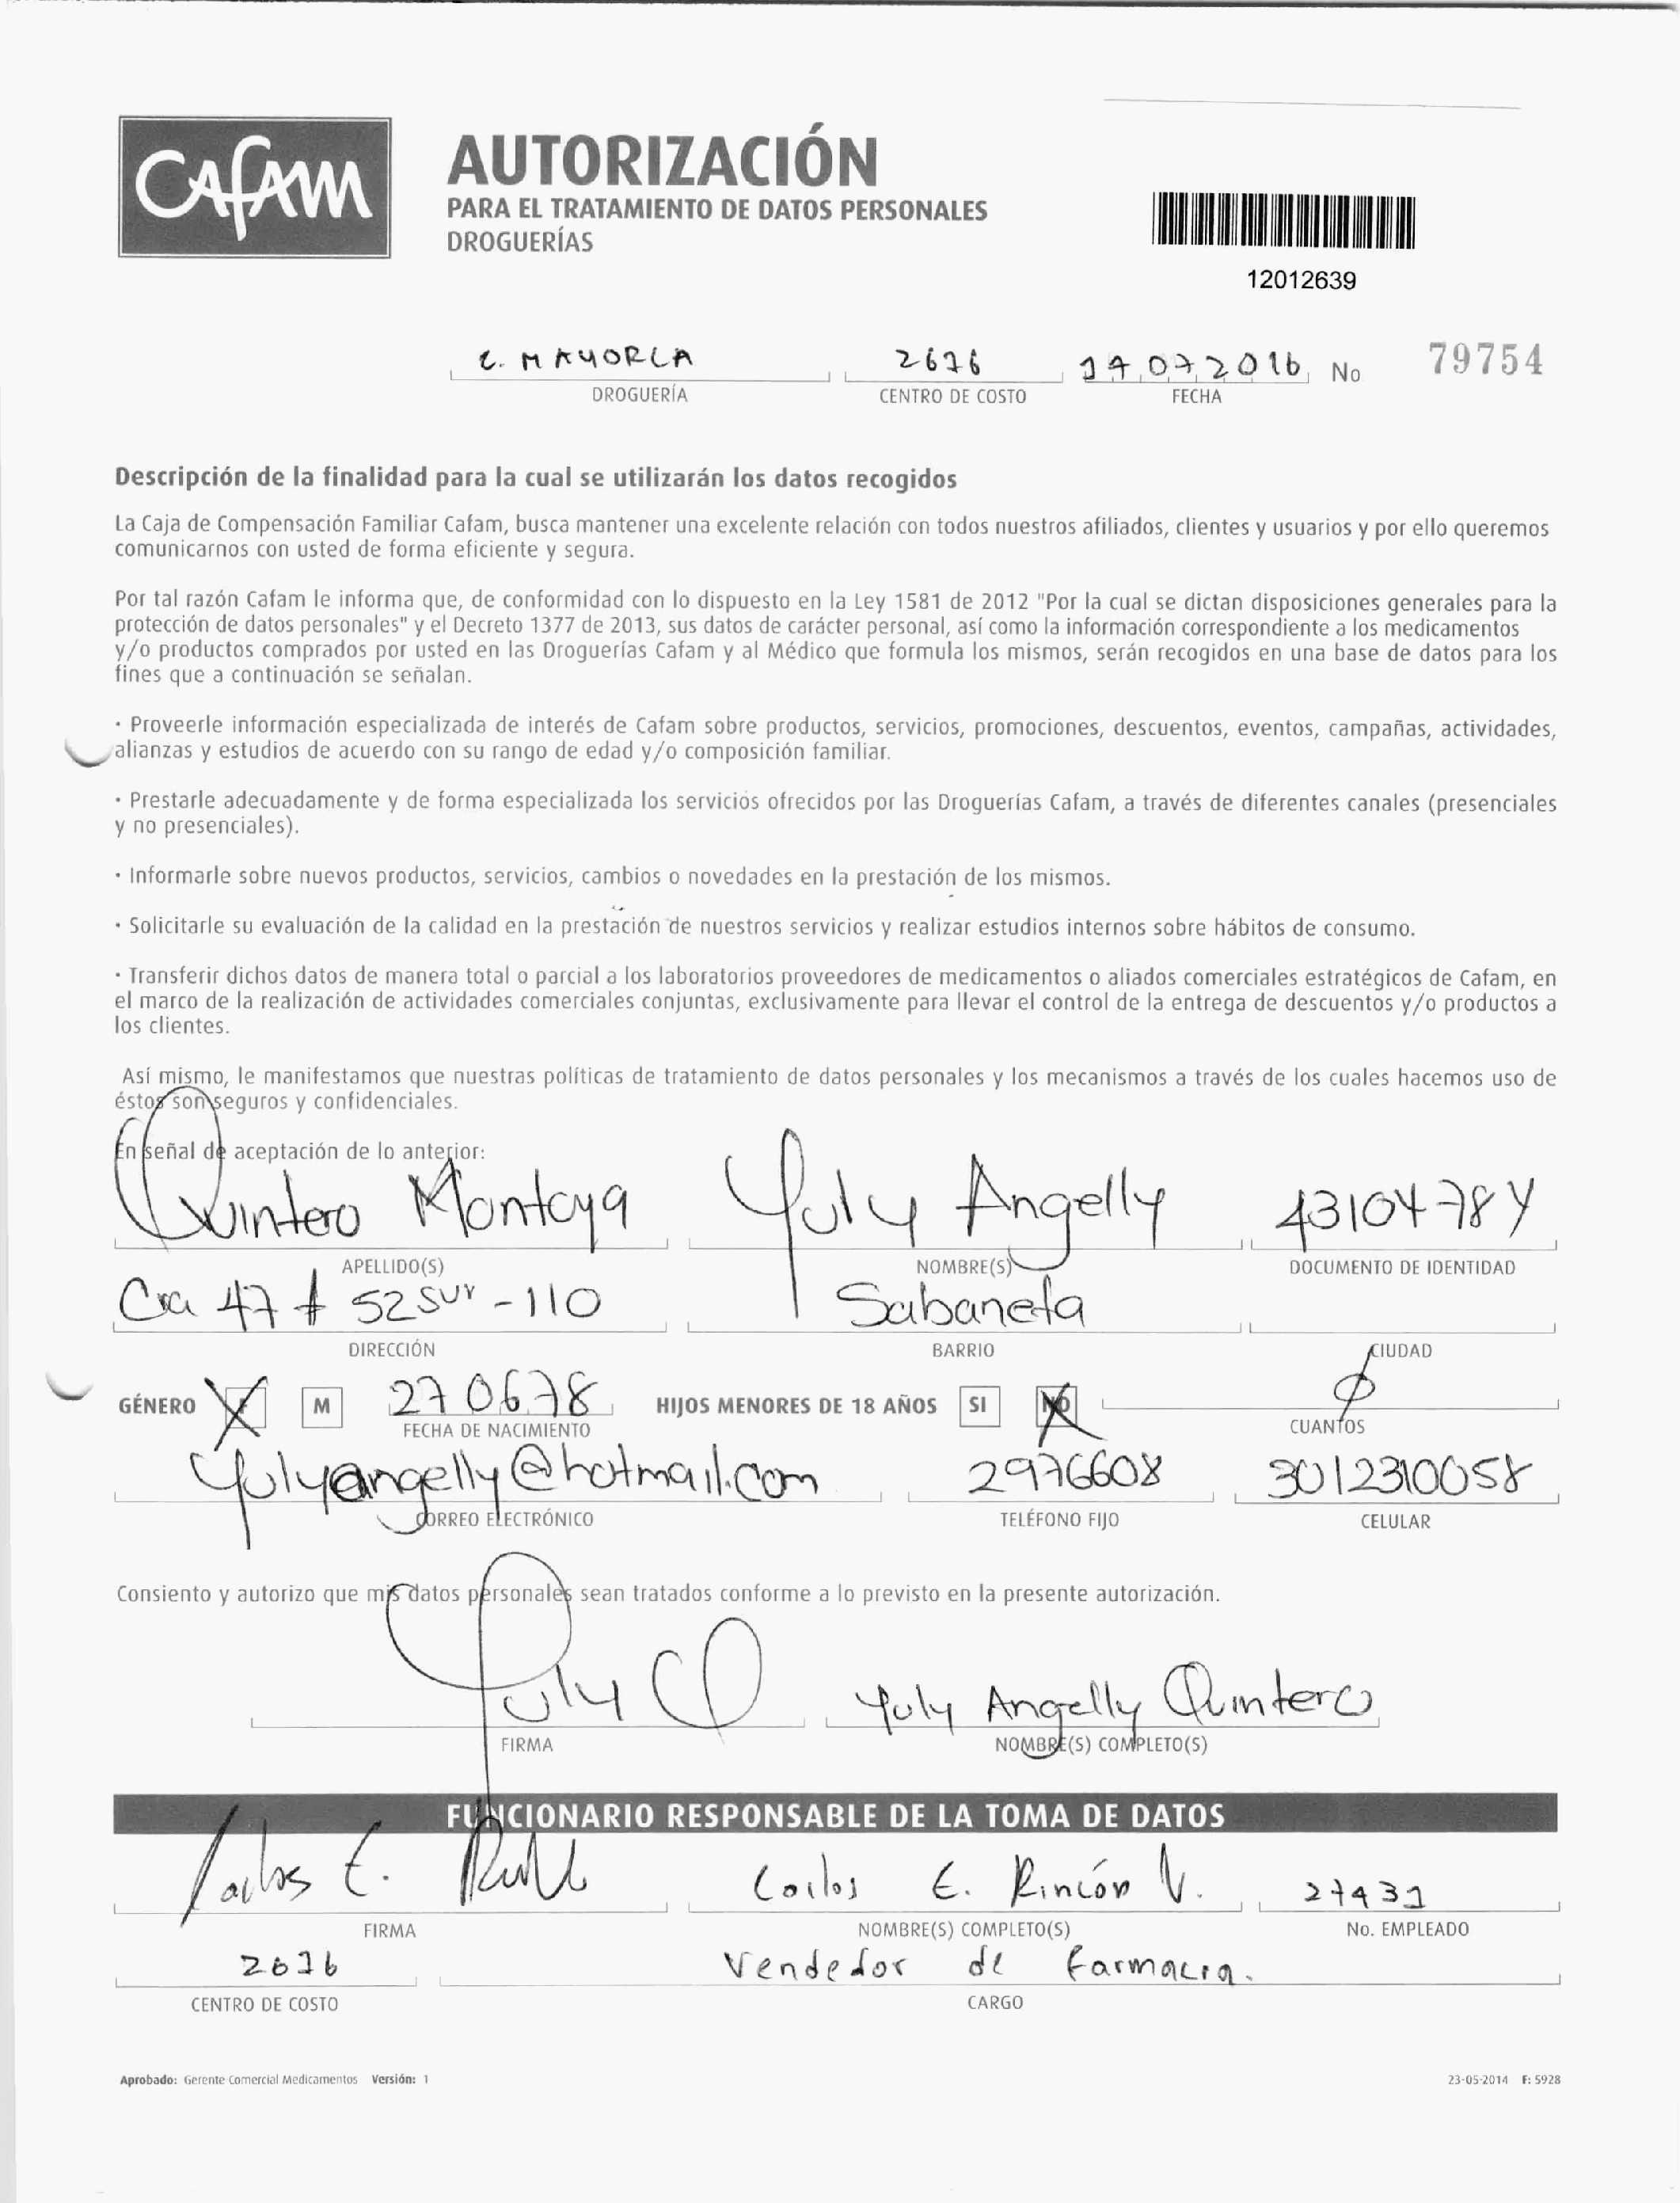 CAFAM
AUTORIZACIÓN
PARA EL TRATAMIENTO DE DATOS PERSONALES
DROGUERÍAS
12012639
MAYORCA 2676 2016 No 79754
DROGUERÍA CENTRO DE COSTO FECHA
Descripción de la finalidad para la cual se utilizarán los datos recogidos
La Caja de Compensación Familiar Cafam, busca mantener una excelente relación con todos nuestros afiliados, clientes y usuarios y por ello queremos
comunicarnos con usted de forma eficiente y segura.
Por tal razón Cafam le informa que, de conformidad con lo dispuesto en la Ley 1581 de 2012 "Por la cual se dictan disposiciones generales para la
protección de datos personales" y el Decreto 1377 de 2013, sus datos de carácter personal, así como la información correspondiente a los medicamentos
y/o productos comprados por usted en las Droguerías Cafam y al Médico que formula los mismos, serán recogidos en una base de datos para los
fines que a continuación se señalan.
· Proveerle información especializada de interés de Cafam sobre productos, servicios, promociones, descuentos, eventos, campañas, actividades,
alianzas y estudios de acuerdo con su rango de edad y/o composición familiar.
· Prestarle adecuadamente y de forma especializada los servicios ofrecidos por las Droguerías Cafam, a través de diferentes canales (presenciales
y no presenciales).
· Informarle sobre nuevos productos, servicios, cambios o novedades en la prestación de los mismos.
· Solicitarle su evaluación de la calidad en la prestación de nuestros servicios y realizar estudios internos sobre hábitos de consumo.
· Transferir dichos datos de manera total o parcial a los laboratorios proveedores de medicamentos o aliados comerciales estratégicos de Cafam, en
el marco de la realización de actividades comerciales conjuntas, exclusivamente para llevar el control de la entrega de descuentos y/o productos a
los clientes.
Así mismo, le manifestamos que nuestras políticas de tratamiento de datos personales y los mecanismos a través de los cuales hacemos uso de
éstos son seguros y confidenciales.
En señal de aceptación de lo anterior:
Quintero Montoya Yuly Angelly
APELLIDO(S) NOMBRE(S) DOCUMENTO DE IDENTIDAD
Cra 47 # 52 sur - 110 Sabaneta
DIRECCIÓN BARRIO CIUDAD
GÉNERO X M 270678 HIJOS MENORES DE 18 AÑOS SI NO Ø
FECHA DE NACIMIENTO CUANTOS
Yulyangelly@hotmail.com 2976608 3012310058
CORREO ELECTRÓNICO TELÉFONO FIJO CELULAR
Consiento y autorizo que mis datos personales sean tratados conforme a lo previsto en la presente autorización.
Yuly Q Yuly Angelly Quintero
FIRMA NOMBRE(S) COMPLETO(S)
FUNCIONARIO RESPONSABLE DE LA TOMA DE DATOS
Carlos E. Carlos E. Rincón V. 27431
FIRMA NOMBRE(S) COMPLETO(S) No. EMPLEADO
2676 Vendedor de Farmacia.
CENTRO DE COSTO CARGO
Aprobado: Gerente Comercial Medicamentos Versión: 1 23-05-2014 F: 5928